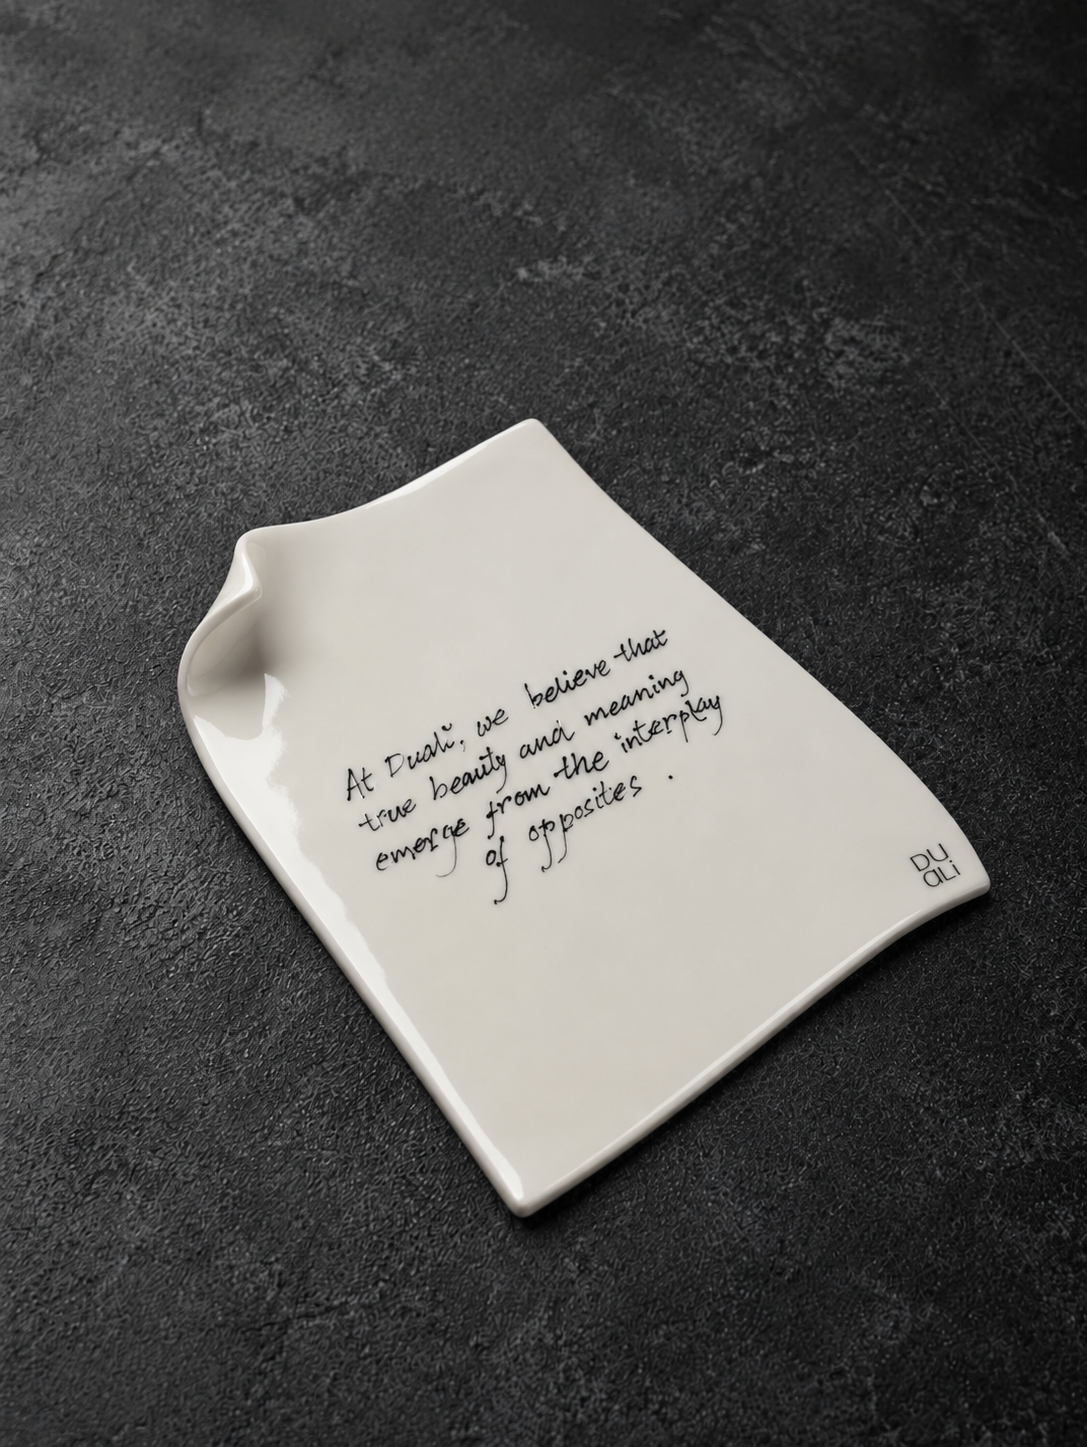 At Duali, we believe that
true beauty and meaning
emerge from the interplay
of opposites .
DU
ALi